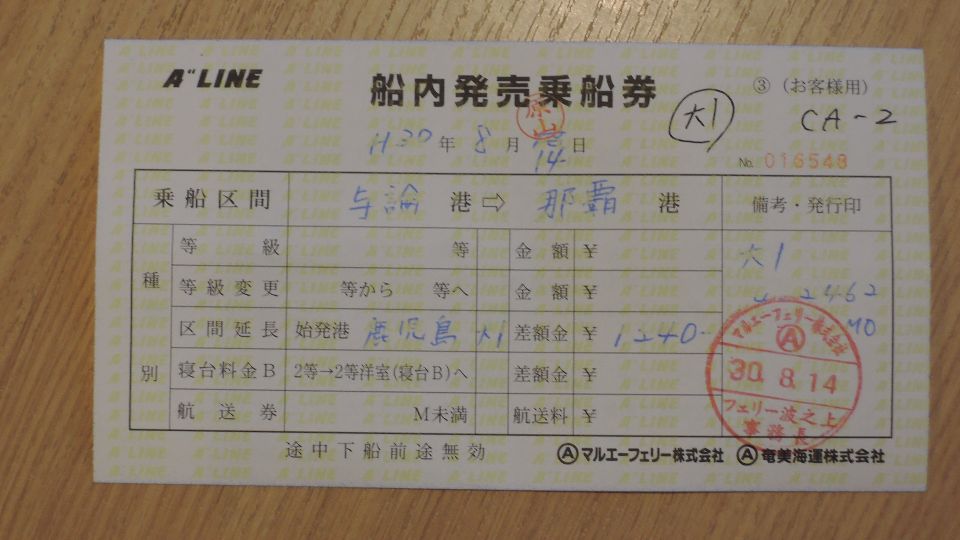 A"LINE 船内発売乗船券 ③(お客様用)
大1 CA-2
H30年 8月 14日
原
No. 016548
乗船区間 与論 港⇨ 那覇 港 備考・発行印
種別
等級 等 金額 ¥
大1
等級変更 等から 等へ 金額 ¥
2462
区間延長 始発港 鹿児島 大1 差額金 ¥ 1240-
MO
寝台料金B 2等→2等洋室(寝台B)へ 差額金 ¥
航送券 M未満 航送料 ¥
マルエーフェリー株式会社
A
30.8.14
フェリー波之上
事務長
途中下船前途無効 Ⓐマルエーフェリー株式会社 Ⓐ奄美海運株式会社